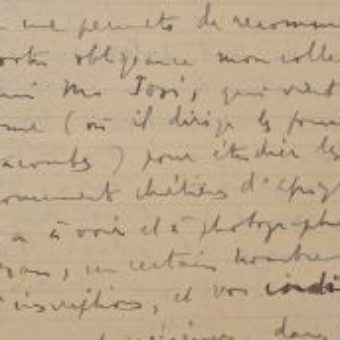 me permets de recomm
votre obligeance mon colle
ami Mr Josi, qui vient
ome (où il dirige les
acombes) pour étudier les
monument chrétiens d'
a à voir et à photographi
un certain nombre
inscriptions, et vos indi
dans